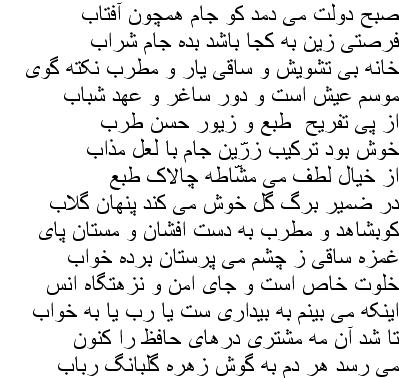 صبح دولت می دمد کو جام همچون آفتاب
فرصتی زین به کجا باشد بده جام شراب
خانه بی تشویش و ساقی یار و مطرب نکته گوی
موسم عیش است و دور ساغر و عهد شباب
از پی تفریح طبع و زیور حسن طرب
خوش بود ترکیب زرّین جام با لعل مذاب
از خیال لطف می مشّاطه چالاک طبع
در ضمیر برگ گل خوش می کند پنهان گلاب
کوبشاهد و مطرب به دست افشان و مستان پای
غمزه ساقی ز چشم می پرستان برده خواب
خلوت خاص است و جای امن و نزهتگاه انس
اینکه می بینم به بیداری ست یا رب یا به خواب
تا شد آن مه مشتری درهای حافظ را کنون
می رسد هر دم به گوش زهره گلبانگ رباب